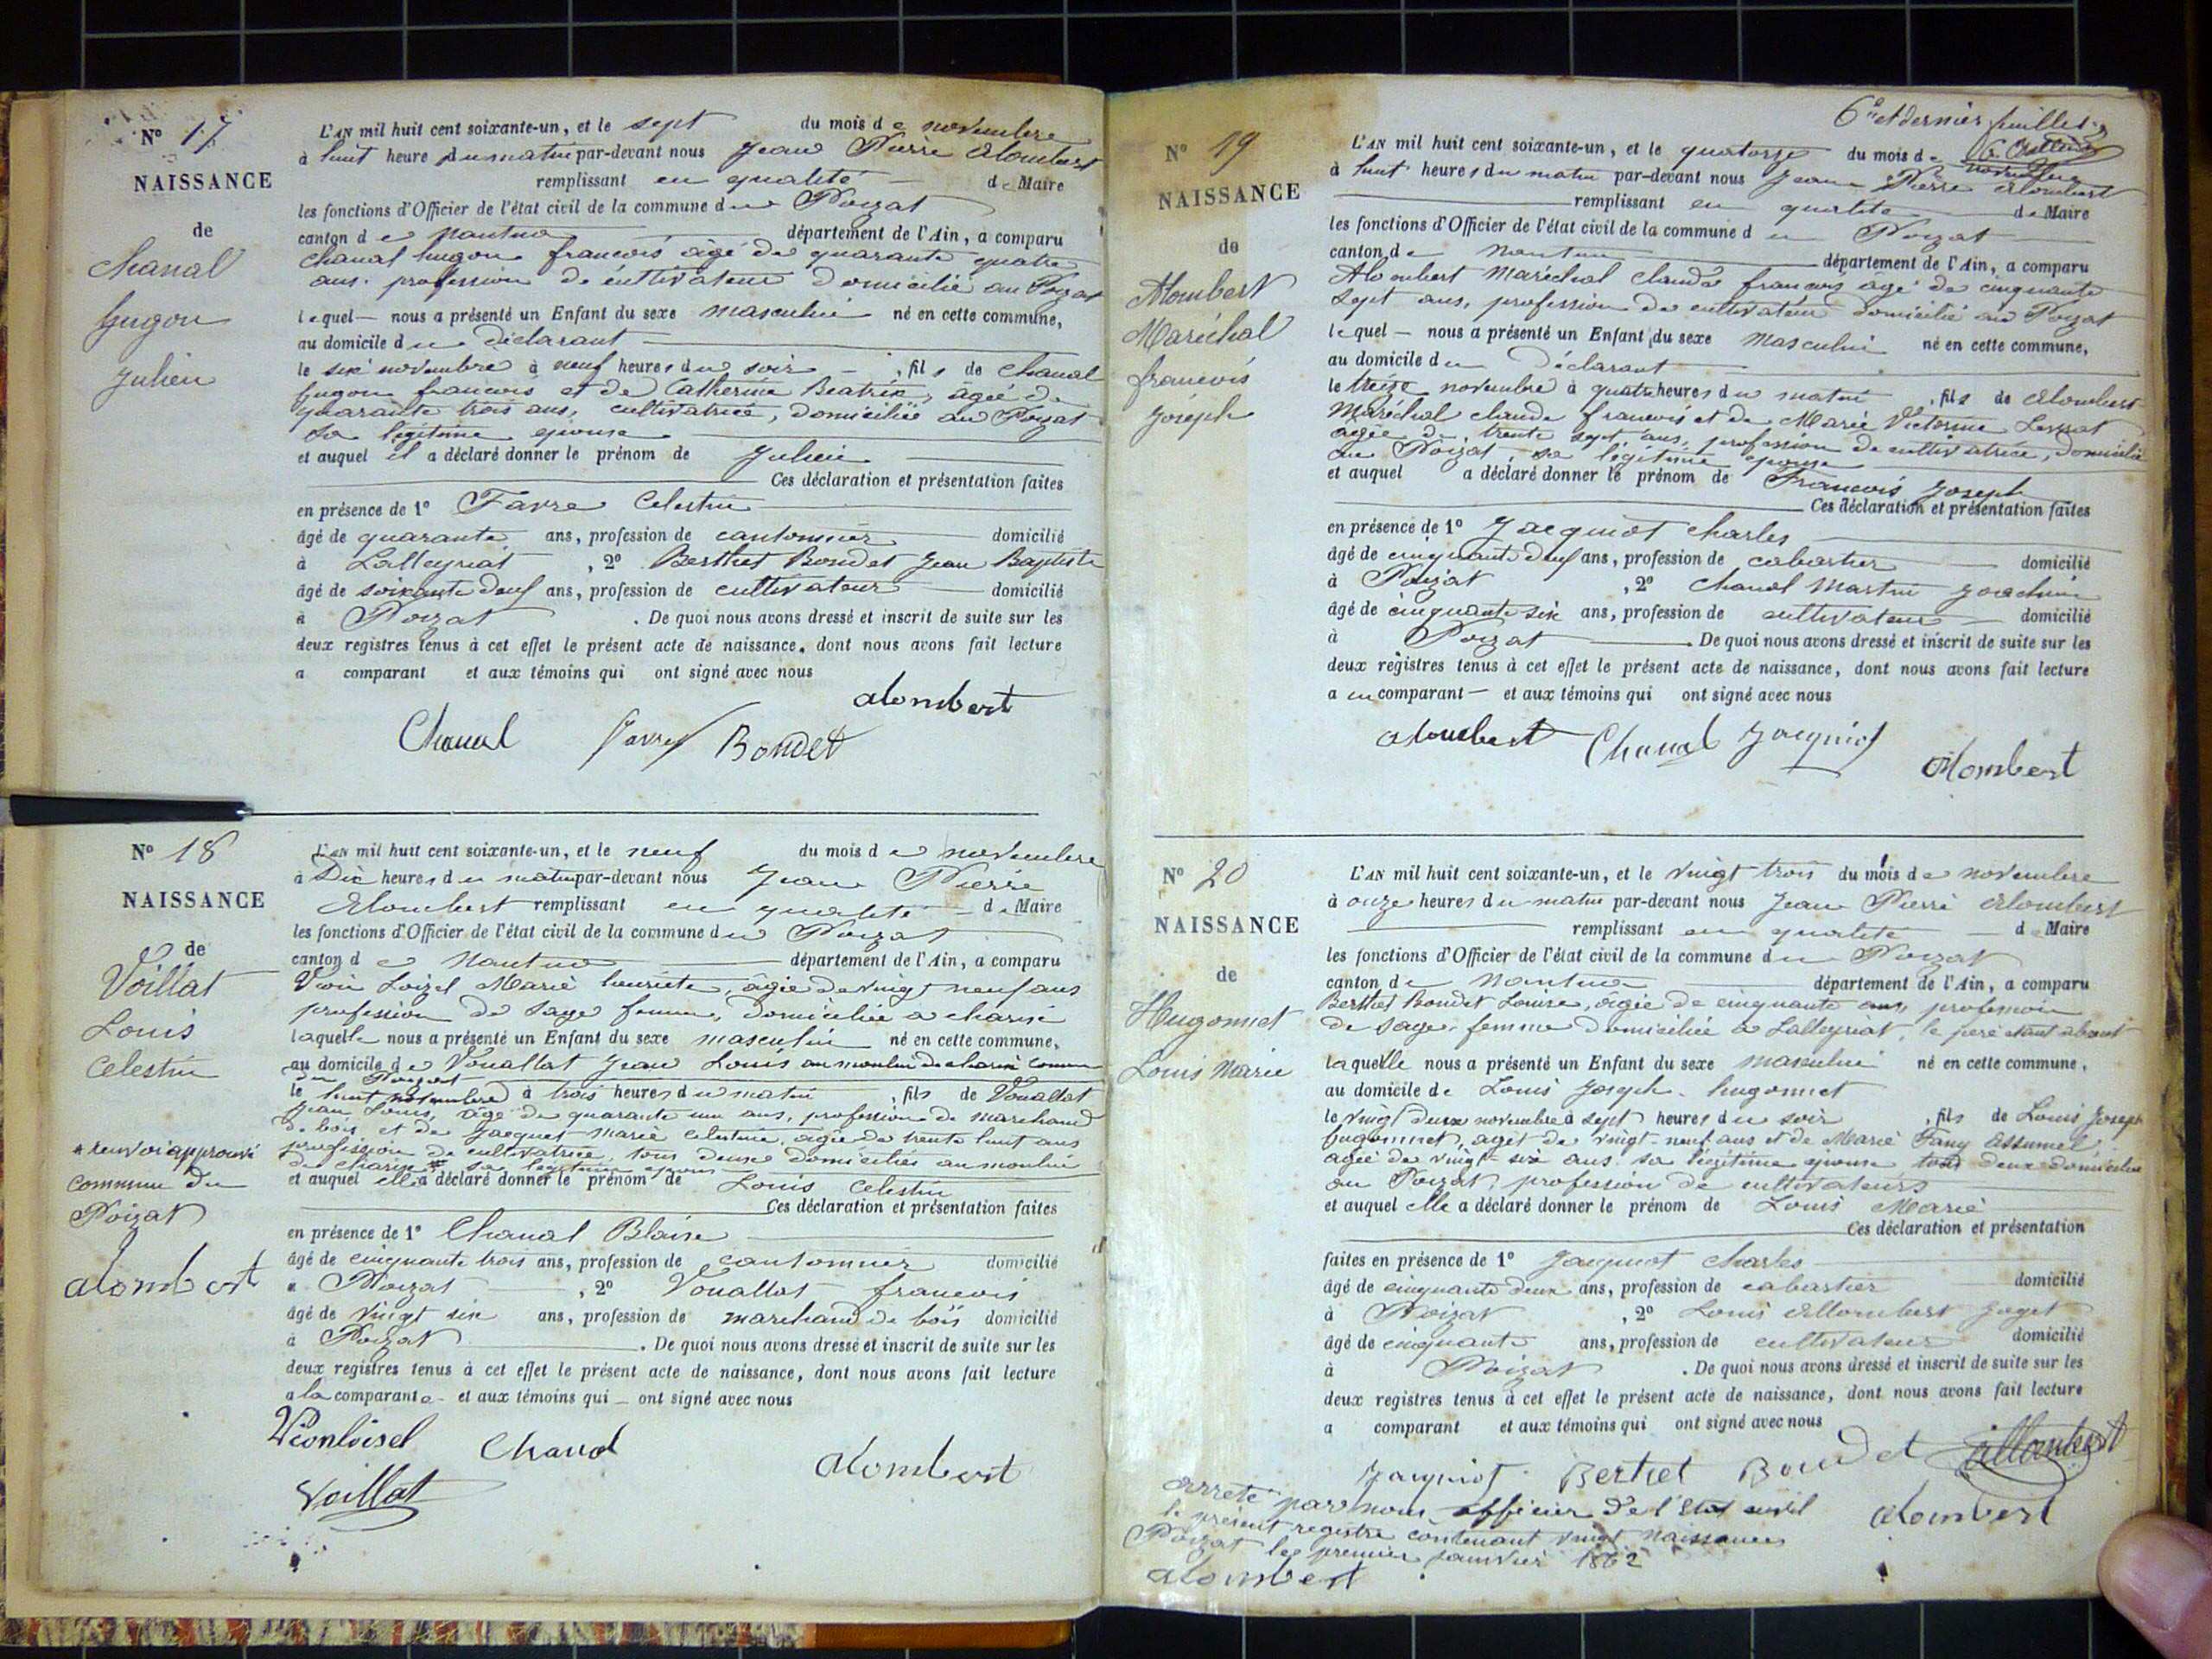 N° 17
NAISSANCE
de
Chanal
hugon
Julien
L'AN mil huit cent soixante-un, et le sept du mois de novembre
à huit heure du matin par-devant nous Jean Pierre Alombert
remplissant en qualité de Maire
les fonctions d'Officier de l'état civil de la commune du Poizat
canton de Nantua département de l'Ain, a comparu
Chanal hugon francois âgé de quarante quatre
ans. profession de cultivateur domicilié au Poizat
lequel nous a présenté un Enfant du sexe masculin né en cette commune,
au domicile du déclarant
le six novembre à neuf heures du soir, fils de Chanal
hugon francois et de Catherine Beatrix, âgée de
quarante trois ans, cultivatrice, domiciliée au Poizat
sa légitime epouse
et auquel il a déclaré donner le prénom de Julien
Ces déclaration et présentation faites
en présence de 1° Favre Celestin
âgé de quarante ans, profession de cantonnier domicilié
à Lalleyriat, 2° Berthet Bondet Jean Baptiste
âgé de soixante deux ans, profession de cultivateur domicilié
à Poizat. De quoi nous avons dressé et inscrit de suite sur les
deux registres tenus à cet effet le présent acte de naissance, dont nous avons fait lecture
a comparant et aux témoins qui ont signé avec nous
alombert
Chanal favre Bondet
N° 18
NAISSANCE
de
Voillat
Louis
Celestin
* renvoi approuvé
commune du
Poizat
alombert
L'AN mil huit cent soixante-un, et le neuf du mois de novembre
à Dix heures du matin par-devant nous Jean Pierre
Alombert remplissant en qualité de Maire
les fonctions d'Officier de l'état civil de la commune du Poizat
canton de Nantua département de l'Ain, a comparu
Vion Loizel Marie henriete, âgée de vingt neuf ans
profession de Sage femme, domiciliée a charix
laquelle nous a présenté un Enfant du sexe masculin né en cette commune,
au domicile de Vouallat Jean Louis au moulin de charix commune
du Poizat
le huit novembre à trois heures du matin, fils de Vouallat
Jean Louis, âgé de quarante un ans, profession de marchand
de bois et de Jacquet marie celestine, agée de trente huit ans
profession de cultivatrice, tous deux domiciliés au moulin
de charix * sa legitime epouse
et auquel elle a déclaré donner le prénom de Louis Celestin
Ces déclaration et présentation faites
en présence de 1° Chanal Blaise
âgé de cinquante trois ans, profession de cantonnier domicilié
à Poizat, 2° Vouallat francois
âgé de vingt six ans, profession de marchand de bois domicilié
à Poizat. De quoi nous avons dressé et inscrit de suite sur les
deux registres tenus à cet effet le présent acte de naissance, dont nous avons fait lecture
a la comparante et aux témoins qui ont signé avec nous
Vionloisel Chanal
alombert
Voillat
6e et dernier feuillet
N° 19
NAISSANCE
de
Alombert
Maréchal
francois
Joseph
L'AN mil huit cent soixante-un, et le quatorze du mois de novembre
à huit heures du matin par-devant nous Jean Pierre Alombert
remplissant en qualité de Maire
les fonctions d'Officier de l'état civil de la commune du Poizat
canton de Nantua département de l'Ain, a comparu
Alombert Maréchal claude francois âgé de cinquante
sept ans, profession de cultivateur domicilié au Poizat
lequel nous a présenté un Enfant du sexe masculin né en cette commune,
au domicile du déclarant
le treize novembre à quatre heures du matin, fils de Alombert
Maréchal claude francois et de Marie Victorine
âgée de trente sept ans, profession de cultivatrice, domiciliée
au Poizat sa légitime epouse
et auquel a déclaré donner le prénom de Francois Joseph
Ces déclaration et présentation faites
en présence de 1° Jacquiot Charles
âgé de cinquante deux ans, profession de cabartier domicilié
à Poizat, 2° Chanal Martin Joachim
âgé de cinquante six ans, profession de cultivateur domicilié
à Poizat. De quoi nous avons dressé et inscrit de suite sur les
deux registres tenus à cet effet le présent acte de naissance, dont nous avons fait lecture
a u comparant et aux témoins qui ont signé avec nous
alombert Chanal Jacquiot
alombert
N° 20
NAISSANCE
de
Hugonnet
Louis Marie
L'AN mil huit cent soixante-un, et le vingt trois du mois de novembre
à onze heures du matin par-devant nous Jean Pierre Alombert
remplissant en qualité de Maire
les fonctions d'Officier de l'état civil de la commune du Poizat
canton de Nantua département de l'Ain, a comparu
Berthet Bondet Louise, âgée de cinquante ans, profession
de sage-femme domiciliée a Lalleyriat, le père etant absent
laquelle nous a présenté un Enfant du sexe masculin né en cette commune,
au domicile de Louis Joseph hugonnet
le vingt deux novembre à sept heures du soir, fils de Louis Joseph
hugonnet, âgé de vingt-neuf ans et de Marie Fany Assumel
agée de vingt-six ans sa légitime épouse tous deux domiciliés
au Poizat profession de cultivateurs
et auquel elle a déclaré donner le prénom de Louis Marie
Ces déclaration et présentation
faites en présence de 1° Jacquiot Charles
âgé de cinquante deux ans, profession de cabartier domicilié
à Poizat, 2° Louis Allombert Goget
âgé de cinquante ans, profession de cultivateur domicilié
à Poizat. De quoi nous avons dressé et inscrit de suite sur les
deux registres tenus à cet effet le présent acte de naissance, dont nous avons fait lecture
a comparant et aux témoins qui ont signé avec nous
Jacquiot Berthet Boudet allombert
alombert
Arrêté par nous officier de l'Etat civil
le présent registre contenant vingt naissances
Poizat le premier janvier 1862
alombert